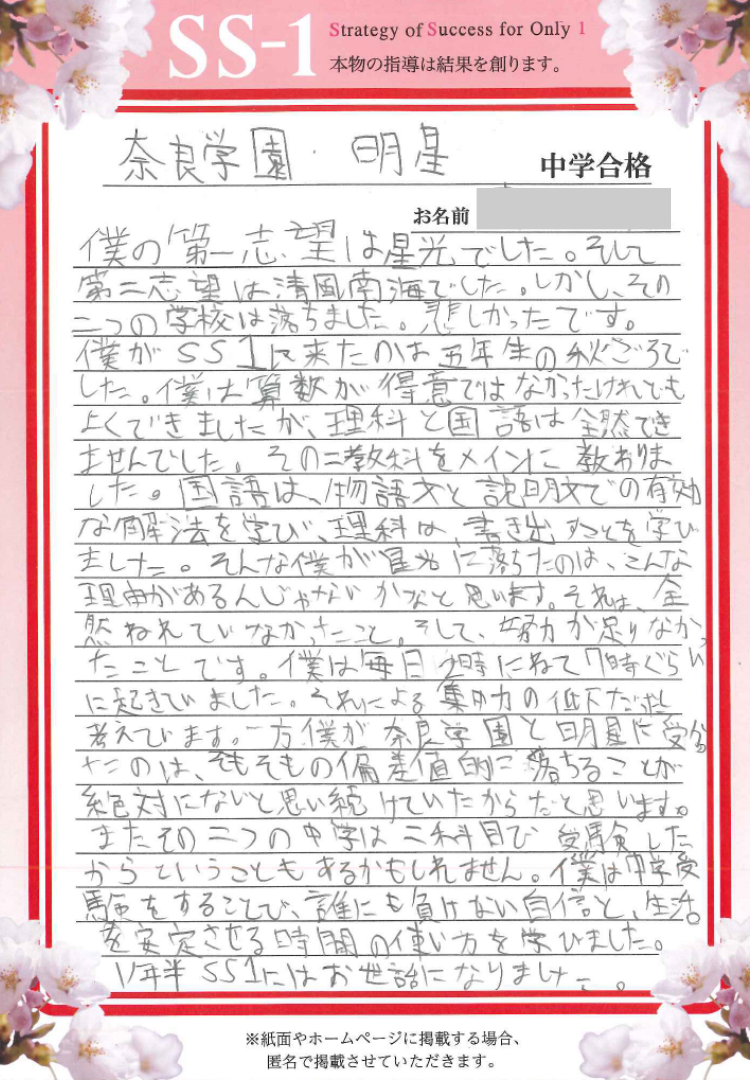 SS-1
Strategy of Success for Only 1
本物の指導は結果を創ります。
奈良学園・明星 中学合格
お名前
僕の第一志望は星光でした。そして
第二志望は清風南海でした。しかし、その
二つの学校は落ちました。悲しかったです。
僕がSS1に来たのは五年生の秋ごろで
した。僕は算数が得意ではなかったけれども
よくできましたが、理科と国語は全然でき
ませんでした。その二教科をメインに教わりま
した。国語は、物語文と説明文での有効
な解法を学び、理科は、書き出すことを学び
ました。そんな僕が星光に落ちたのは、こんな
理由があるんじゃないかなと思います。それは、全
然ねれていなかったこと。そして、努力が足りなかっ
たことです。僕は毎日2時にねて7時ぐらい
に起きていました。それによる集中力の低下だと
考えています。一方僕が奈良学園と明星に受かっ
たのは、そもそもの偏差値的に落ちることが
絶対にないと思い続けていたからだと思います。
またその二つの中学は三科目で受験した
からということもあるかもしれません。僕は中学受
験をすることで、誰にも負けない自信と、生活
を安定させる時間の使い方を学びました。
1年半SS1にはお世話になりました。
※紙面やホームページに掲載する場合、
匿名で掲載させていただきます。